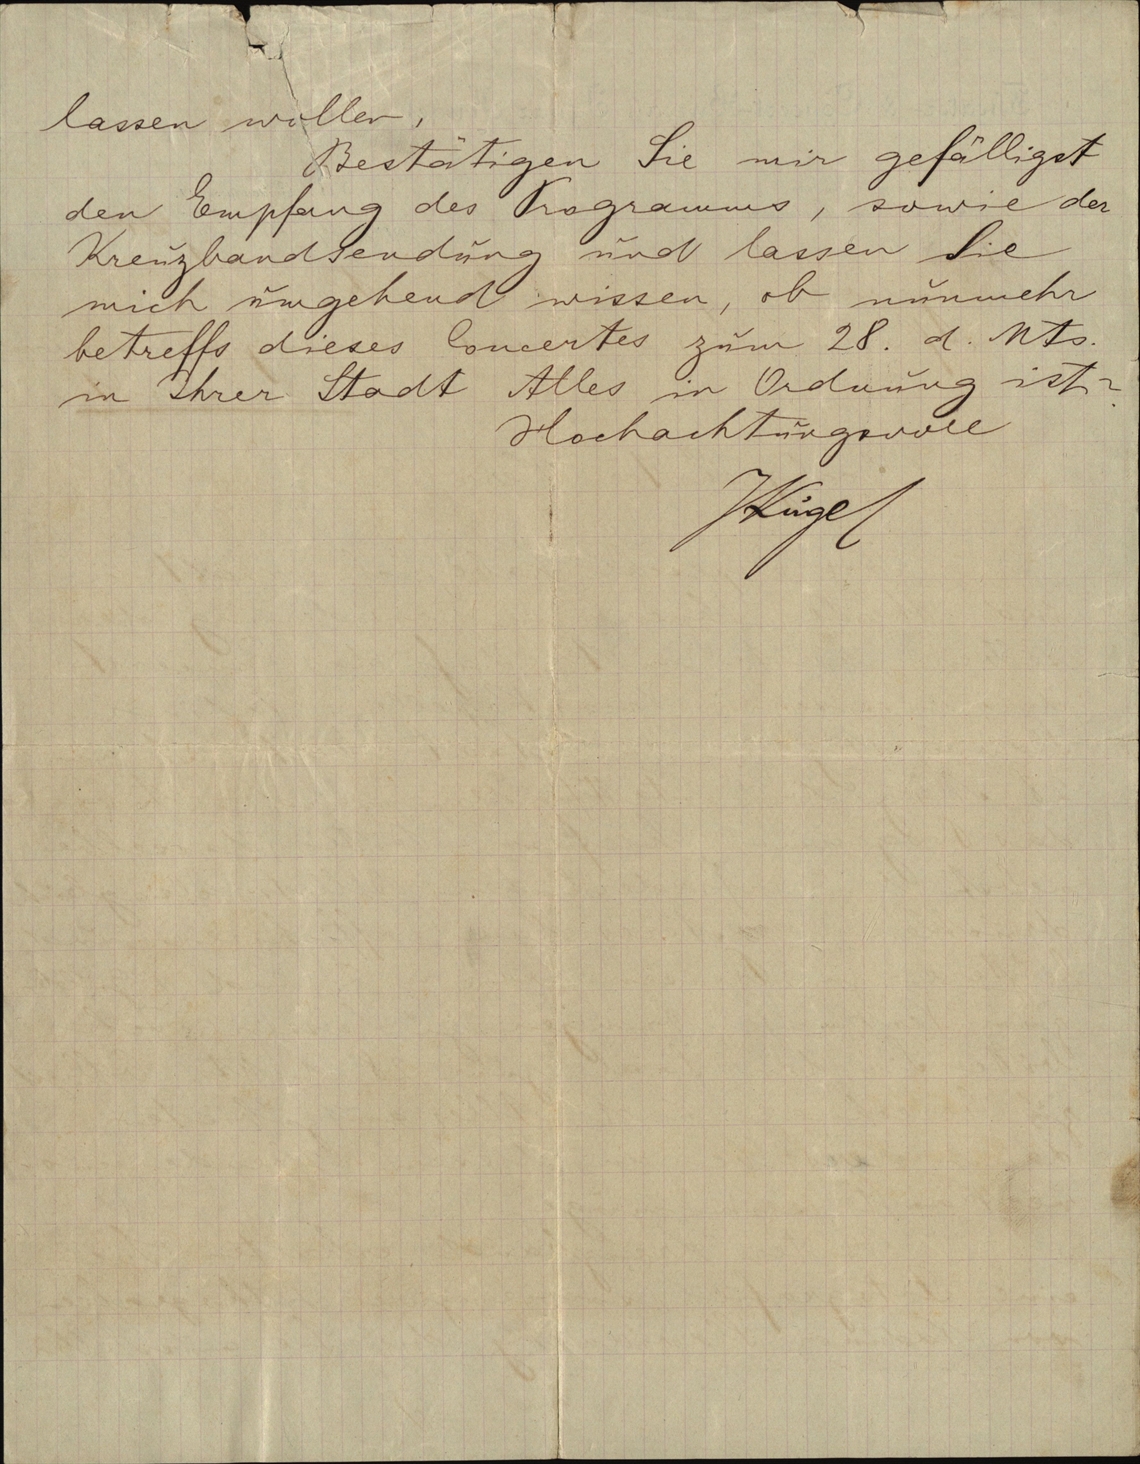 lassen wollen,
Bestätigen Sie mir gefälligst
den Empfang des Programms, sowie der
Kreuzbandsendung und lassen Sie
mich umgehend wissen, ob nunmehr
betreffs dieses Concertes zum 28. d. Mts.
in Ihrer Stadt Alles in Ordnung ist?
Hochachtungsvoll
JKugel